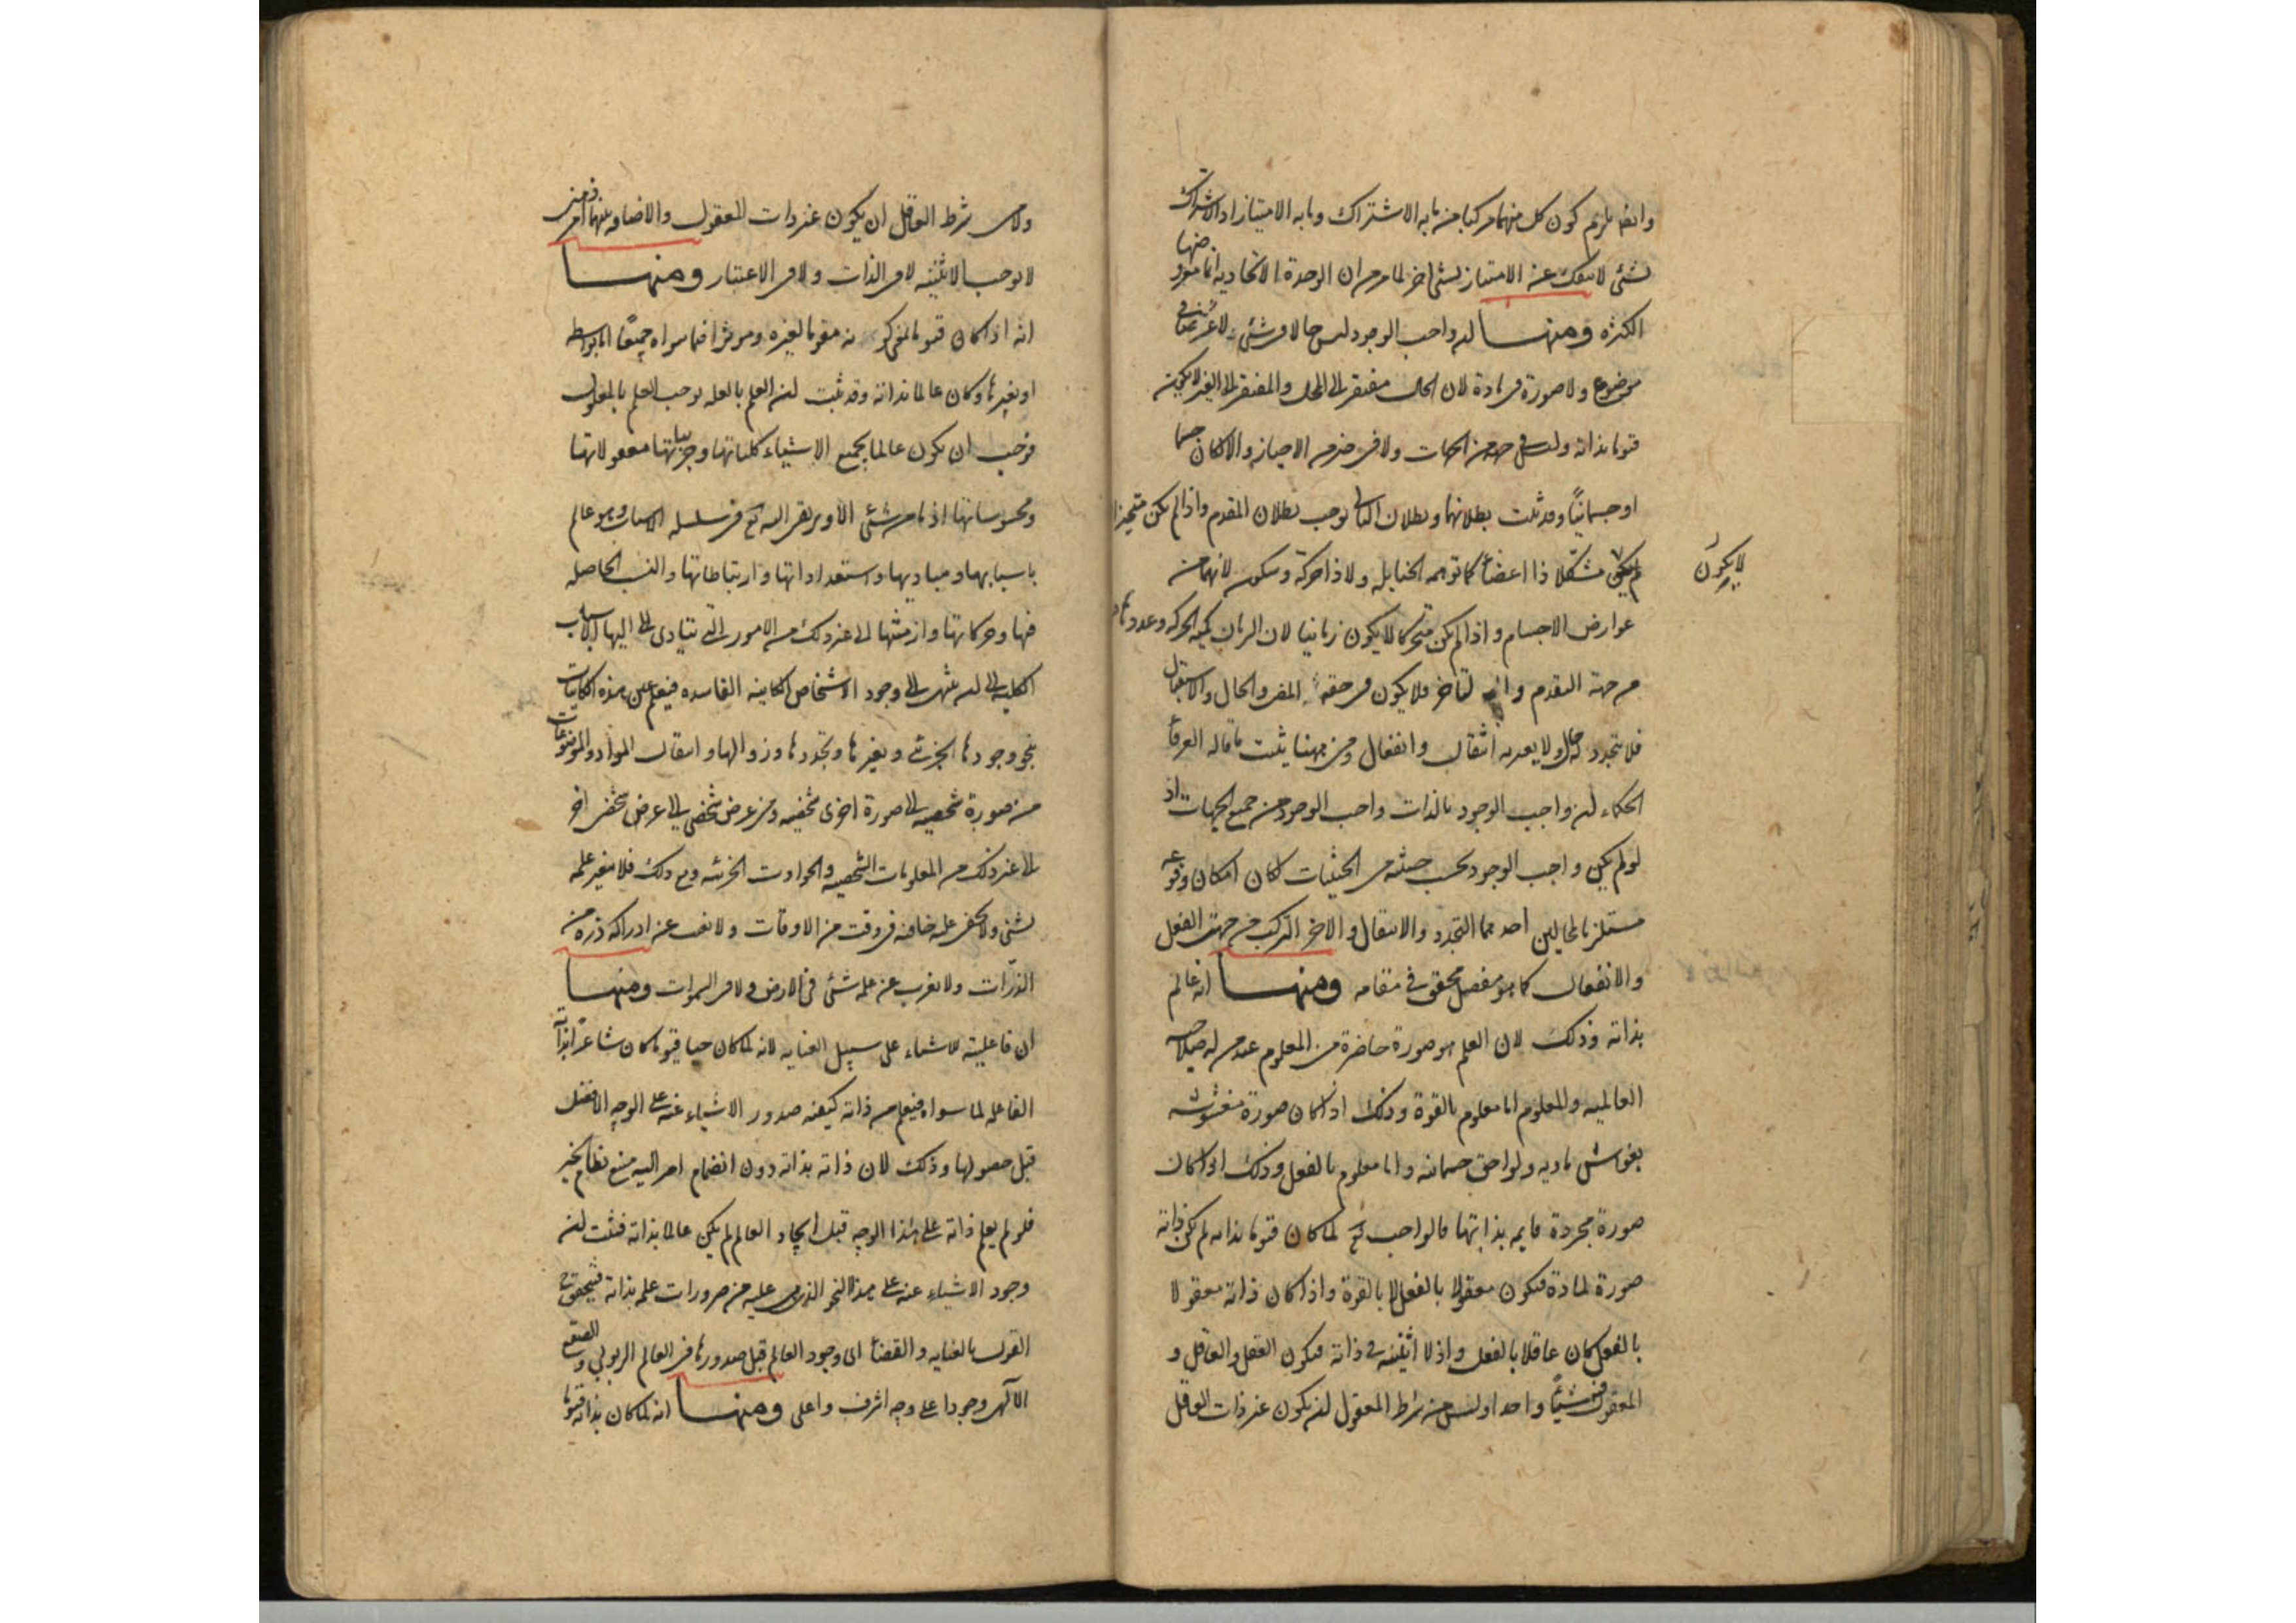 وايضا يلزم كون كل منهما مركبا من ما به الاشتراك وما به الامتياز اذ الاشتراك
بشئ لا ينفك عن الامتياز بشئ اخر لما مر من ان الوحدة الاتحادية انما منها
الكثره ومنها ان واجب الوجود ليس حالا فى شئ لا عرضا فى
موضوع ولا صورة فى مادة لان الحال مفتقر الى المحل والمفتقر الى الغير لا يكون
قيوما بذاته وليس فى جهة من الجهات ولا فى حيز من الاحياز والا لكان جسما
او جسمانيا وقد ثبت بطلانهما وبطلان التالى يوجب بطلان المقدم واذا لم يكن متحيزا
لا يكون
لم يكن مشكلا ذا اعضاء كما توهمه الحنابله ولا ذا حركة وسكون لانهما من
عوارض الاجسام واذا لم يكن متحركا لا يكون زمانيا لان الزمان كمية الحركه وعددها
من جهة التقدم والتاخر فلا يكون فى حقه المضى والحال والاستقبال
فلا يتجدد له حال ولا يعتريه انتقال وانفعال ومن ههنا يثبت ما قاله العرفاء
الحكماء ان واجب الوجود بالذات واجب الوجود من جميع الجهات اذ
لو لم يكن واجب الوجود بحسب حيثية من الحيثيات لكان امكان وقوعه
مستلزما لمحالين احدهما التجدد والانتقال والاخر التركب من جهتى الفعل
والانفعال كما هو مفصل محقق فى مقامه ومنها انه عالم
بذاته وذلك لان العلم هو صورة حاضرة من المعلوم عند من له صلاحيه
العالميه والمعلوم اما معلوم بالقوة وذلك اذا كان صورة مغشوشه
بغواشى ماديه ولواحق جسمانيه واما معلوم بالفعل وذلك اذا كان
صورة مجردة قايمه بذاتها فالواجب تع لما كان قيوما بذاته لم يكن ذاته
صورة لمادة فيكون معقولا بالفعل لا بالقوة واذا كان ذاته معقولا
بالفعل كان عاقلا بالفعل واذ لا اثنينيه فى ذاته فيكون العقل والعاقل و
المعقول فيه شيئا واحدا وليس من شرط المعقول ان يكون غير ذات العاقل
ولا من شرط العاقل ان يكون غير ذات المعقول والاضافه بينهما امر ذهنى
لا يوجب الاثنينيه لا فى الذات ولا فى الاعتبار ومنها
انه اذا كان قيوما لغيره وموثرا فيما سواه جميعا اما بواسطه
او بغيرها وكان عالما بذاته وقد ثبت ان العلم بالعله يوجب العلم بالمعلول
فوجب ان يكون عالما بجميع الاشياء كلياتها وجزئياتها معقولاتها
ومحسوساتها اذ ما من شئ الا ويرتقى اليه تع فى سلسله الاسباب وهو عالم
باسبابها ومباديها واستعداداتها وارتباطاتها والنسب الحاصله
فيها وحركاتها وازمنتها الى غير ذلك من الامور التى يتادى اليها الاسباب
الكليه الى ان ينتهى الى وجود الاشخاص الكاينه الفاسده فيعلم عين هذه الكاينات
بنحو وجودها الجزئى وبغيرها وتجددها وزوالها وانتقال المواد والموضوعات
من صورة شخصيه الى صورة اخرى شخصيه ومن عرض شخصى الى عرض شخصى اخر
الى غير ذلك من المعلومات الشخصيه والحوادث الجزئيه ومع ذلك فلا يتغير علمه
بشئ ولا يخفى عليه خافيه فى وقت من الاوقات ولا يغيب عن ادراكه ذرة من
الذرات ولا يعزب عن علمه شئ فى الارض ولا فى السموات ومنها
ان فاعليته للاشياء على سبيل العنايه لانه لما كان حيا قيوما كان شاعرا بذاته
الفاعله لما سواه فيعلم من ذاته كيفيه صدور الاشياء عنه على الوجه الافضل
قبل حصولها وذلك لان ذاته بذاته دون انضمام امر اليه منبع نظام الخير
فلو لم يعلم ذاته على هذا الوجه قبل ايجاد العالم لم يكن عالما بذاته فثبت ان
وجود الاشياء عنه على هذا النحو الذى عليه من ضرورات علمه بذاته فيتحقق
القول بالعنايه والقضاء اى وجود العالم قبل صدورها فى العالم الربوبى والصقع
الالهى وجودا على وجه اشرف واعلى ومنها انه لما كان بذاته قيوما